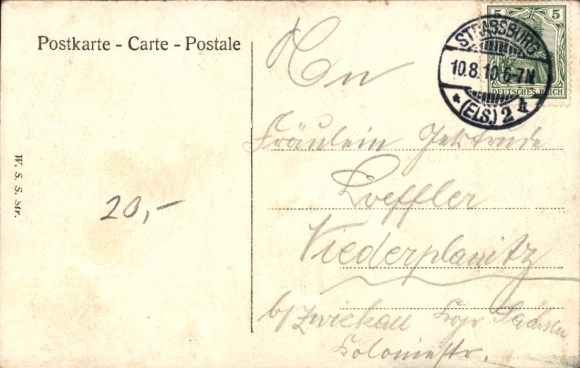 Postkarte - Carte - Postale
5 5
DEUTSCHES REICH
STRASSBURG
10.8.10.6-7N
* (ELS.) 2 k
An
Fräulein Gertrude
Loeffler
Niederplanitz
b/ Zwickau Kgr Sachsen
Koloniestr.
20,-
W. S. S. Str.